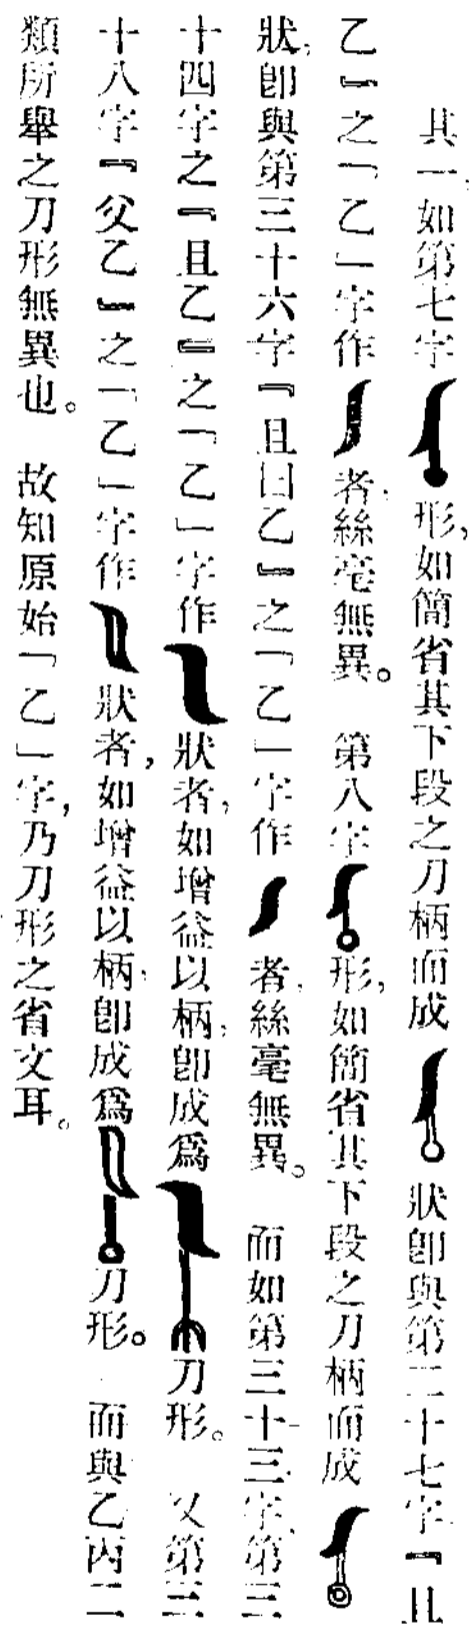 其一，如第七字形，如簡省其下段之刀柄而成狀卽與第二十七字『且
乙』之「乙」字作者，絲毫無異。第八字形，如簡省其下段之刀柄而成
狀，卽與第三十六字『且日乙』之「乙」字作者，絲毫無異。而如第三十三字，第三
十四字之『且乙』之「乙」字作狀者，如增益以柄，卽成爲刀形。又第三
十八字『父乙』之「乙」字作狀者，如增益以柄，卽成爲刀形。而與乙丙二
類所舉之刀形無異也。故知原始「乙」字，乃刀形之省文耳。